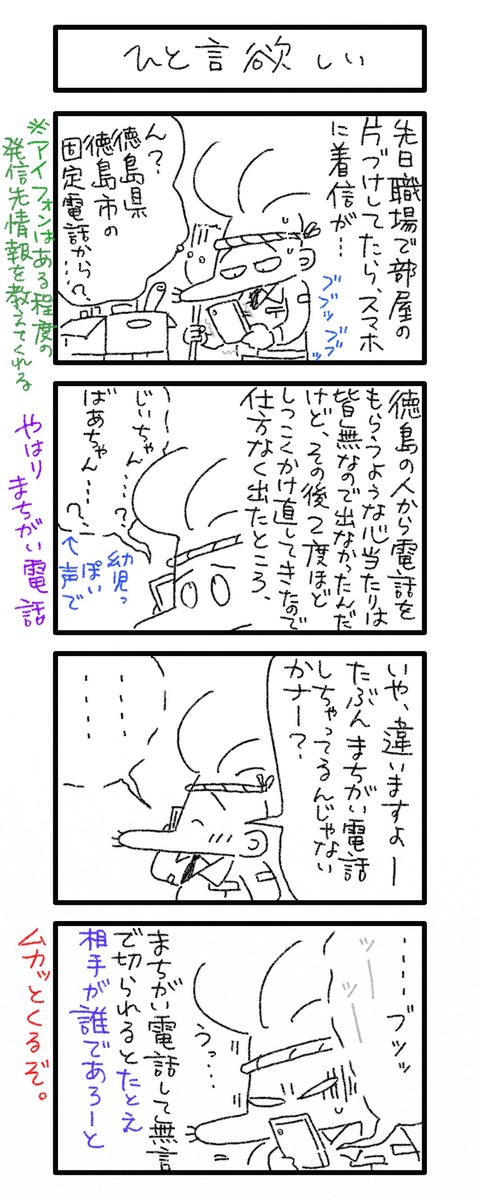 ひと言欲しい
先日職場で部屋の
片づけしてたら、スマホ
に着信が…
ブブッブブッ
ん？
徳島県
徳島市の
固定電話から…？
※アイフォンはある程度の
発信先情報を教えてくれる
徳島の人から電話を
もらうような心当たりは
皆無なので出なかったんだ
けど、その後2度ほど
しつこくかけ直してきたので
仕方なく出たところ、
じいちゃん…？
ばあちゃん…？
幼児っ
ぽい
↑声で
やはり まちがい電話
いや、違いますよー
たぶんまちがい電話
しちゃってるんじゃない
かナー？
……
……
……ブツッ
ツー
ツー
うっ…
まちがい電話して無言
で切られるとたとえ
相手が誰であろーと
ムカッとくるぞ。